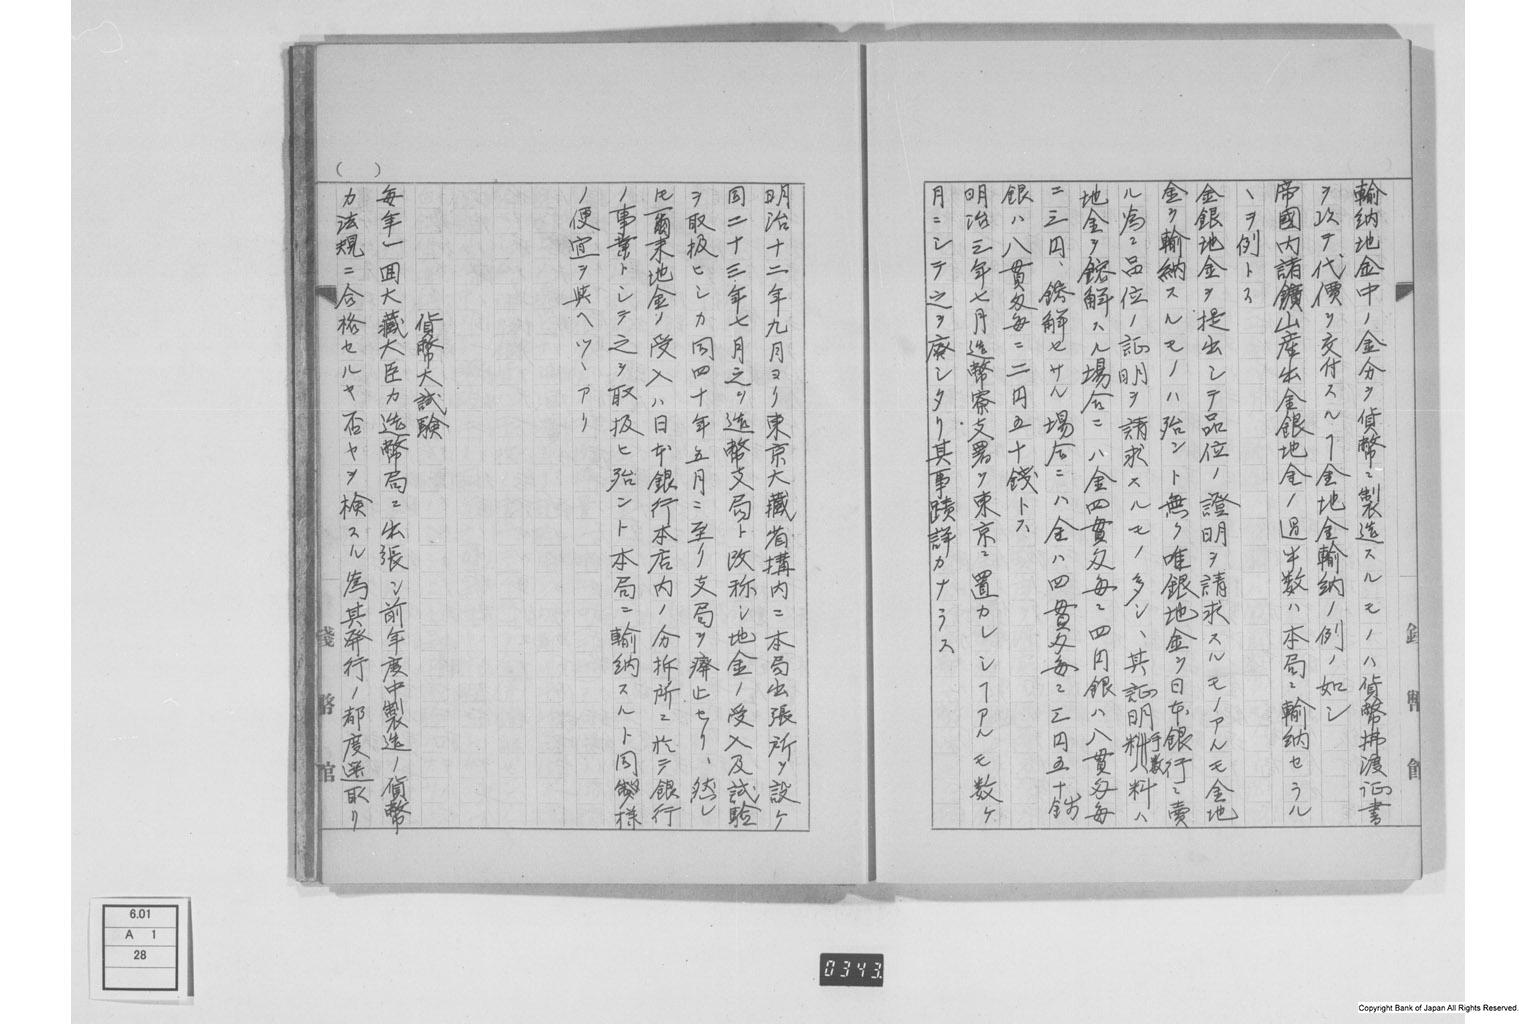 輸納地金中ノ金分ヲ貨幣ニ製造スルモノハ貨幣拂渡証書
ヲ以テ代價ヲ交付スルヿ金地金輸納ノ例ノ如シ
帝國内諸鑛山産出金銀地金ノ過半数ハ本局ニ輸納セラル
ヽヲ例トス
金銀地金ヲ提出シテ品位ノ證明ヲ請求スルモノアルモ金地
金ヲ輸納スルモノハ殆ント無ク唯銀地金ヲ日本銀行ニ賣
ル為ニ品位ノ証明ヲ請求スルモノ多シ、其証明手数料ハ
地金ヲ鎔解スル場合ニハ金四貫匁毎ニ四円銀ハ八貫匁毎
ニ三円、鎔解セサル場合ニハ金ハ四貫匁毎ニ三円五十銭
銀ハ八貫匁毎ニ二円五十錢トス
明治三年七月造幣寮支署ヲ東京ニ置カレシヿアルモ数ケ
月ニシテ之ヲ廃シタリ其事蹟詳カナラス
明治十二年九月ヨリ東京大藏省構内ニ本局出張所ヲ設ケ
同二十三年七月之ヲ造幣支局ト改称シ地金ノ受入及試驗
ヲ取扱ヒシカ同四十年五月ニ至リ支局ヲ癈止セリ、然レ
𪜈爾来地金ノ受入ハ日本銀行本店内ノ分拆所ニ於テ銀行
ノ事業トシテ之ヲ取扱ヒ殆ント本局ニ輸納スルト同様
ノ便宜ヲ與ヘツヽアリ
貨幣大試験
毎年一囬大藏大臣カ造幣局ニ出張シ前年度中製造ノ貨幣
カ法規ニ合格セルヤ否ヤヲ検スル為其発行ノ都度選取リ
錢幣館
錢幣館
6.01
A 1
28
0343
Copyright Bank of Japan All Rights Reserved.